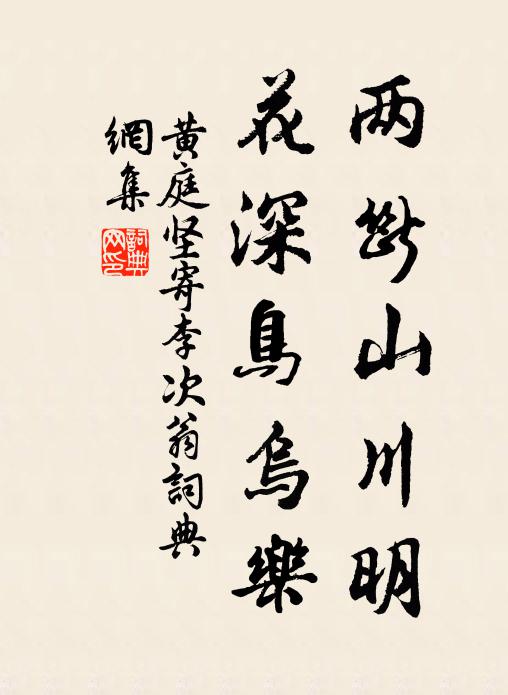 雨断山川明
花深鳥烏樂
黄庭坚寄李次翁詞典
網集
詞典
网印